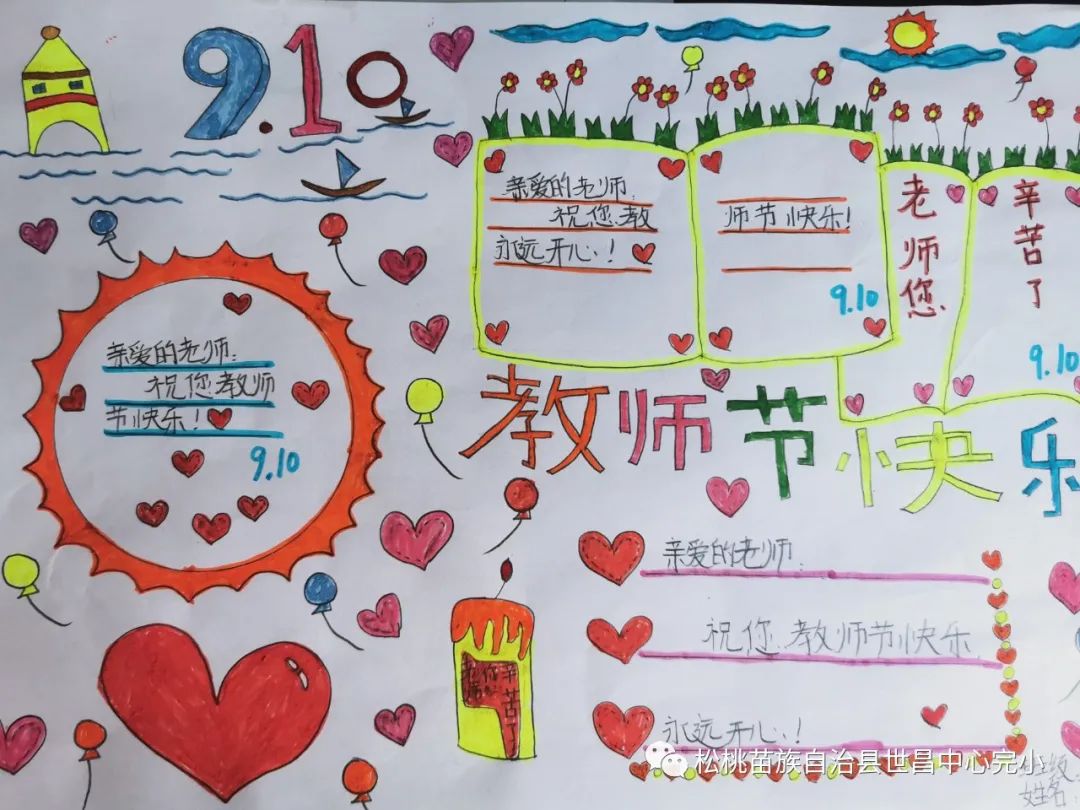 9.10
亲爱的老师:
祝您教
永远开心!
师节快乐!
9.10
老师您
辛苦了
9.10
亲爱的老师:
祝您教师
节快乐!
9.10
教师节快乐
亲爱的老师:
祝您教师节快乐
永远开心!
老师
您
辛苦了
松桃苗族自治县世昌中心完小
班级
姓名